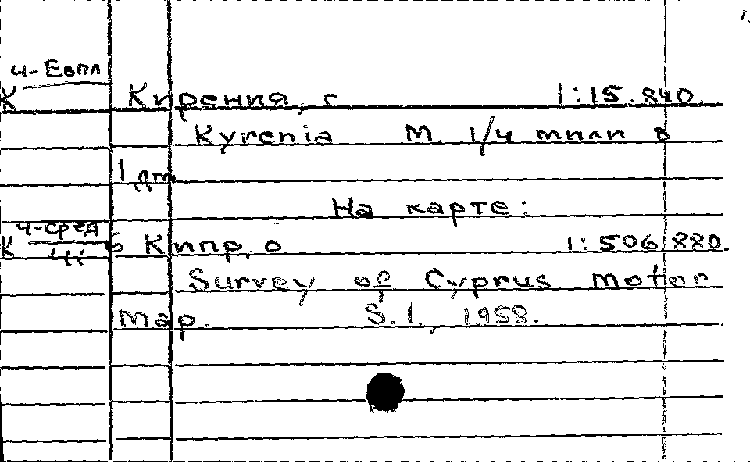 ч-Европ
К Кирения, г 1:15.840
Kyrenia М. 1/4 мили в
1 дм.
На карте:
К ч-сред б Кипр, о 1:506.880.
Survey of Cyprus motor
Map. S.l., 1958.